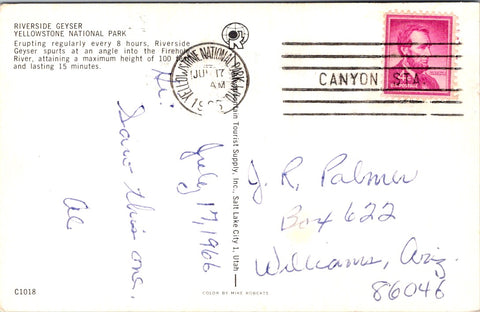 RIVERSIDE GEYSER
YELLOWSTONE NATIONAL PARK
Erupting regularly every 8 hours, Riverside
Geyser spurts at an angle into the Firehole
River, attaining a maximum height of 100
and lasting 15 minutes.
YELLOWSTONE NATIONAL PARK
17
AM
CANYON STA
Hi.
July 17, 1966
Saw this one.
Al
Tourist Supply, Inc., Salt Lake City 1, Utah
J. R. Palmer
Box 622
Williams, Ariz.
86046
C1018
COLOR BY MIKE ROBERTS